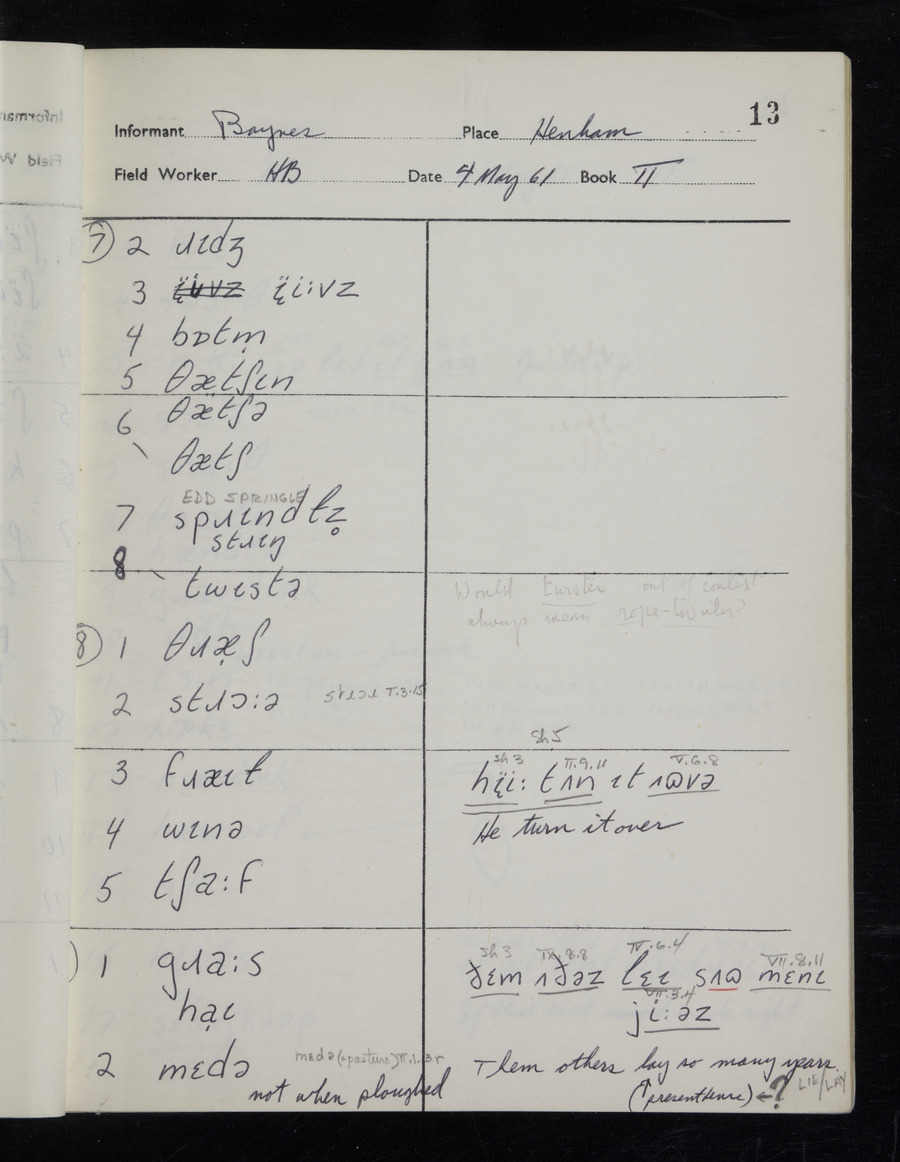 13
Informant Baynes Place Henham
Field Worker HB Date 4 May 61 Book II
7 2 ɹɪdʒ
3 ɪ̈i:vz
4 bɒtm̩
5 θætʃɪn
6 θætʃə
θætʃ
EDD SPRINGLE
7 spɹɪndɫz̥
stɹɪŋ
8 twɪstə
Would twister out of context
always mean rope-twister?
8 1 θɹæ̣ʃ
2 stɹɔ:ə T.3.15
Sh 5
3 fɹæɪt
sh 3 II.9.11 V.6.8
hɪ̈i: tʌn ɪt ʌɷvə
4 wɪnə
He turn it over
5 tʃa:f
1 gɹa:s
sh 3 IX.8.8 IV.6.4 VII.8.11
ðɛm ʌðəz lɛ̣ɪ sʌɷ mɛnɪ
hạɪ
VII.3.4
ji:əz
2 mɛdə mɛdə (=pasture)
Them others lay so many years.
not when ploughed
(↑present tense) ←? LIE/LAY